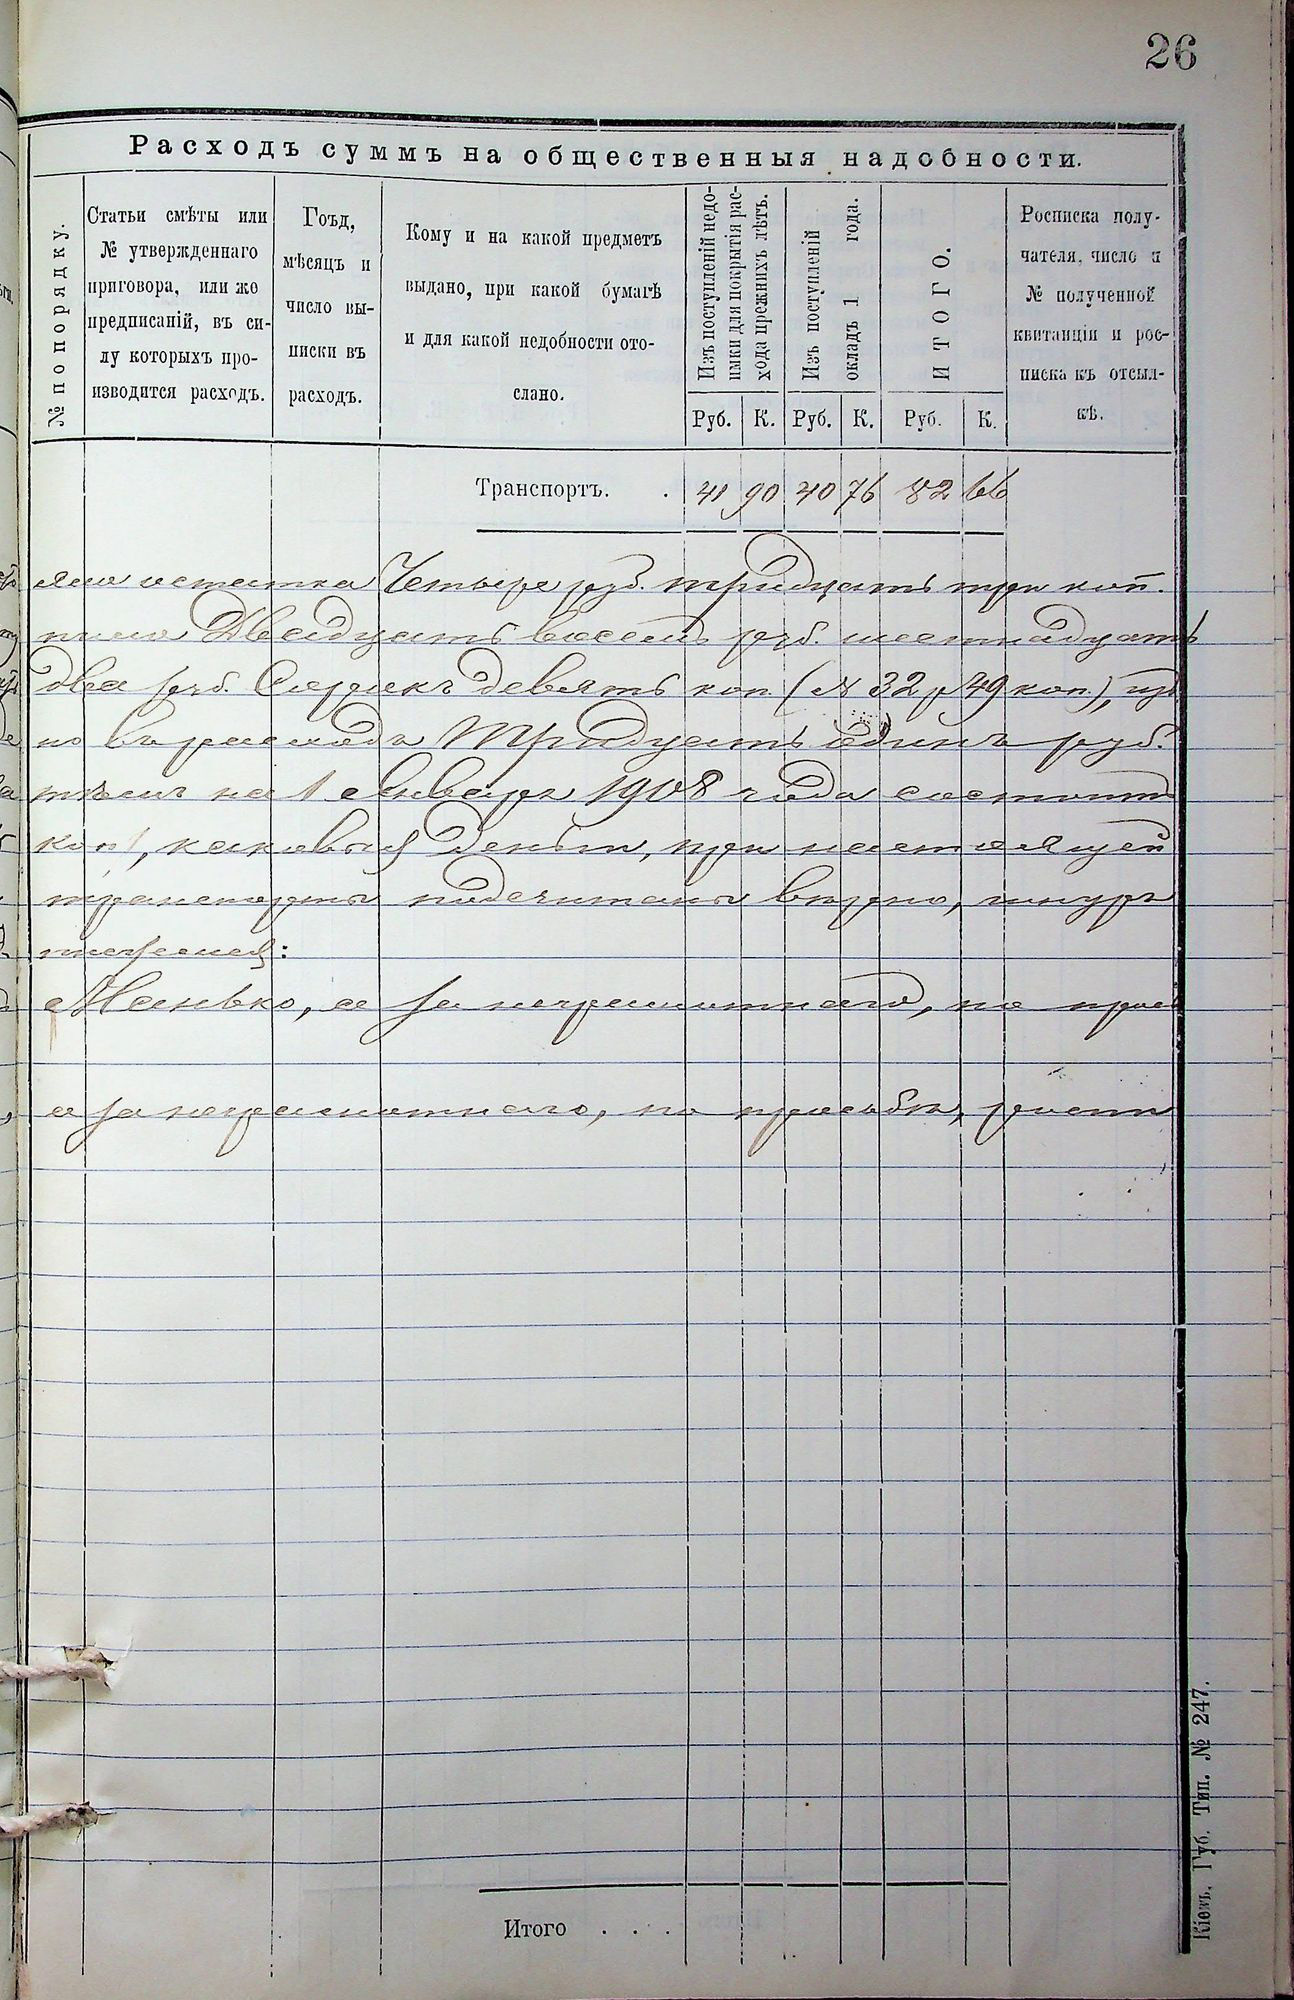 26
Расходъ суммъ на общественныя надобности.
№ по порядку.
Статьи смѣты или
№ утвержденнаго
приговора, или же
предписаній, въ си-
лу которыхъ про-
изводится расходъ.
Гоъд,
мѣсяцъ и
число вы-
писки въ
расходъ.
Кому и на какой предметъ
выдано, при какой бумагѣ
и для какой недобности ото-
слано.
Изъ поступленій недо-
имки для покрытія рас-
хода прежнихъ лѣтъ.
Изъ поступленій
окладъ 1 года.
ИТОГО.
Росписка полу-
чателя, число и
№ полученной
квитанціи и рос-
писка къ отсыл-
кѣ.
Руб. К. Руб. К. Руб. К.
Транспортъ. . 41 90 40 76 82 66
остатка Четыре руб. тридцать три коп.
Двадцать восемь руб. шестнадцать
два руб. Сорокъ девять коп. (32 р 49 коп.), изъ
но въ расходъ Тридцать одинъ руб.
на 1 Января 1908 года состоитъ
коп., каковыя деньги, при настоящей
транспорты подсчитаны вѣрно, шнуръ
Манько, а за неграмотнаго, по прось
а за неграмотнаго, по просьбѣ, росп
Итого . . .
Кіевъ, Губ. Тип. № 247.